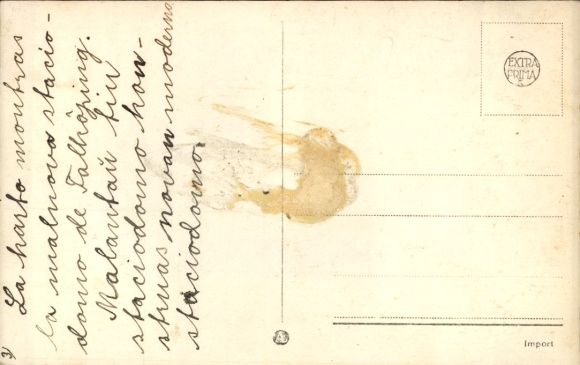 La karto montras
la malnova stacio-
domo de Falköping.
Malantaŭ tiu
staciodomo kon-
struas novan moderno
staciodomo.
EXTRA
PRIMA
Import